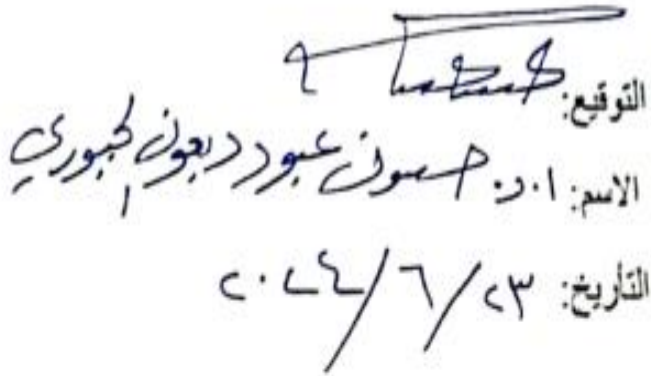 التوقيع:
الاسم: ا.د. حسون عبود دبعون الجبوري
التأريخ: ٢٣/٦/٢٠٢٤